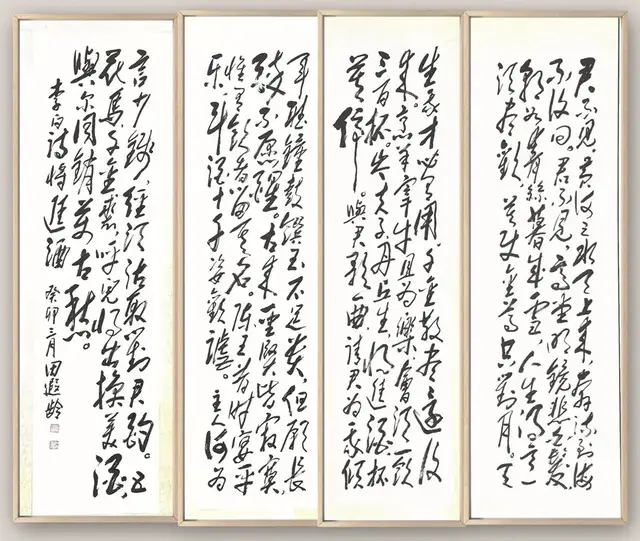 君不見黃河之水天上來,奔流到海
不復回。君不見高堂明鏡悲白髮,
朝如青絲暮成雪。人生得意
須盡歡,莫使金尊空對月。天
生我才必有用,千金散盡還復
來。烹羊宰牛且為樂,會須一飲
三百杯。岑夫子,丹丘生,將進酒,杯
莫停。與君歌一曲,請君為我傾
耳聽。鐘鼓饌玉不足貴,但願長
醉不願醒。古來聖賢皆寂寞,
惟有飲者留其名。陳王昔時宴平
樂,斗酒十千恣歡謔。主人何為
言少錢,徑須沽取對君酌。五
花馬,千金裘,呼兒將出換美酒,
與爾同銷萬古愁。
李白詩將進酒 癸卯三月 田遐齡